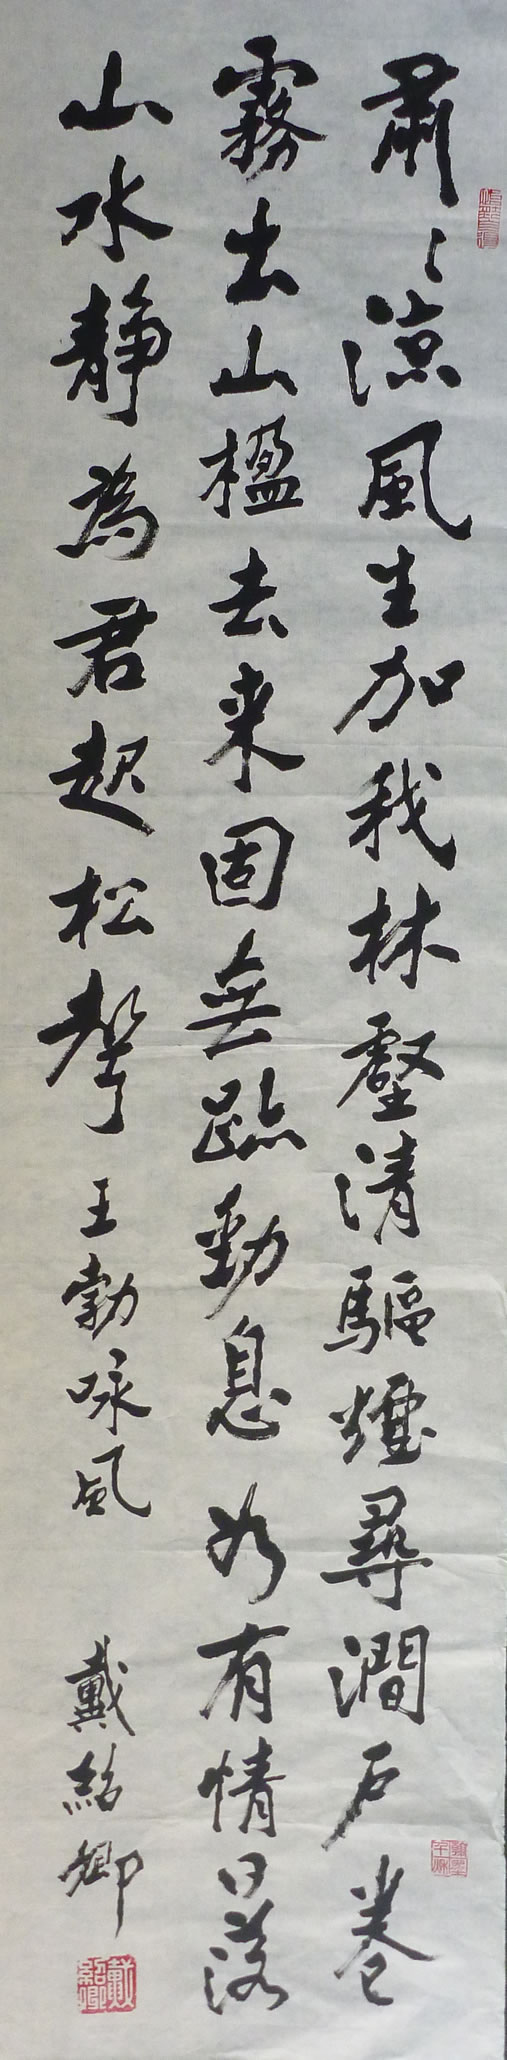 肅〻涼風生加我林壑清驅煙尋澗戶卷
霧出山楹去來固無跡動息如有情日落
山水靜為君起松聲 王勃咏風 戴紹卿
戴紹卿